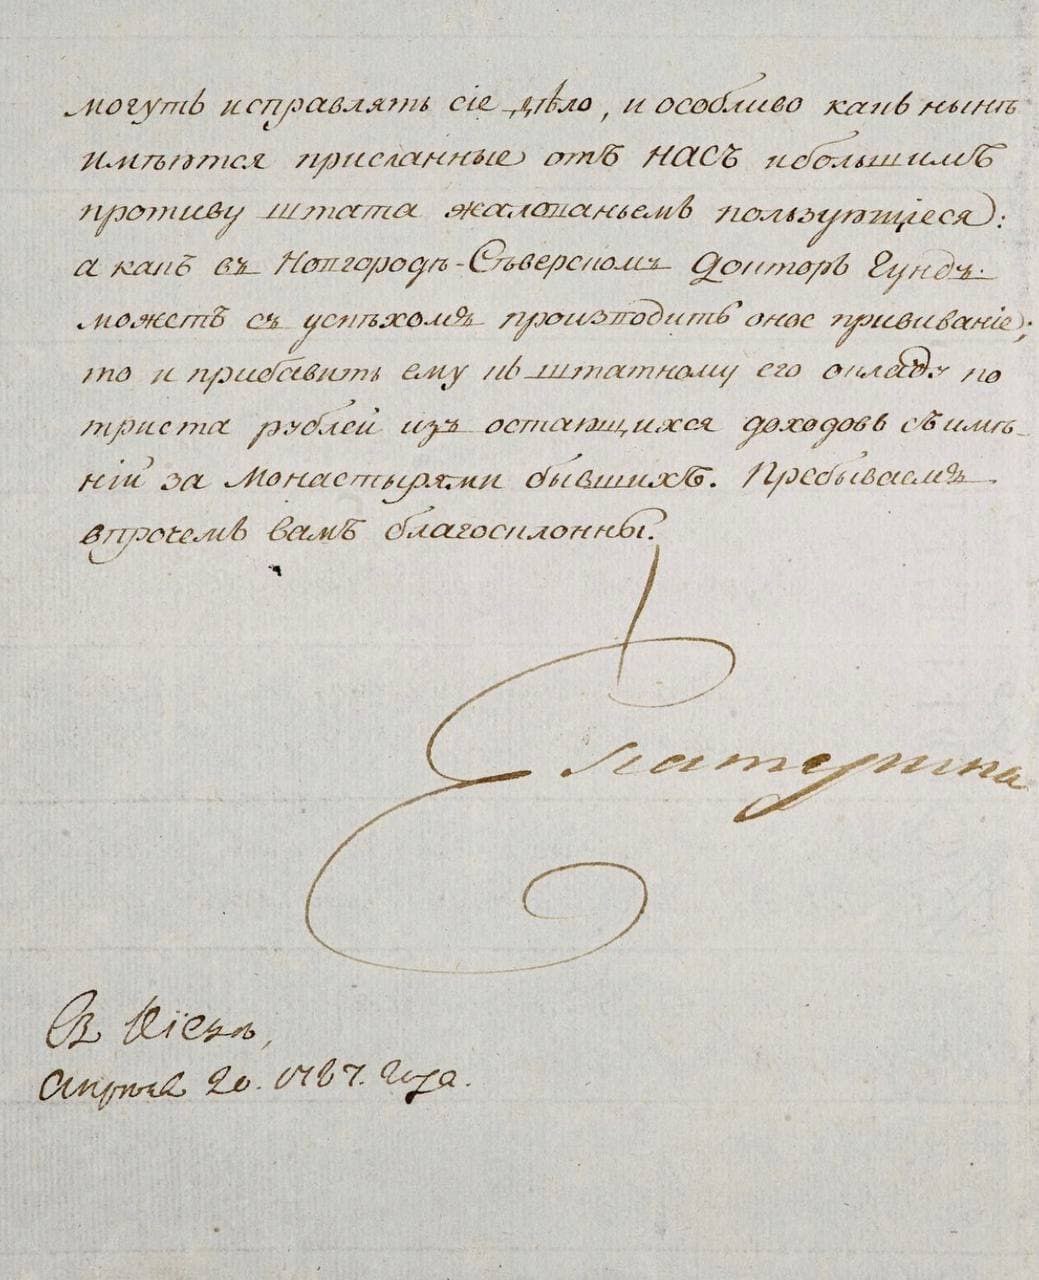 могутъ исправлять сіе дѣло, и особливо какъ нынѣ
имѣются присланные отъ насъ и большимъ
противу штата жалованьемъ пользующіеся:
а какъ въ Новгородѣ-Сѣверскомъ Докторъ Гундъ
можетъ съ успѣхомъ производить оное прививаніе;
то и прибавить ему къ штатному его окладу по
триста рублей изъ остающихся доходовъ съ имѣ-
ній за монастырями бывшихъ. Пребываемъ
впрочемъ вамъ благосклонны.
Екатерина
Въ Кіевѣ,
Апрѣля 20. 1787. года.